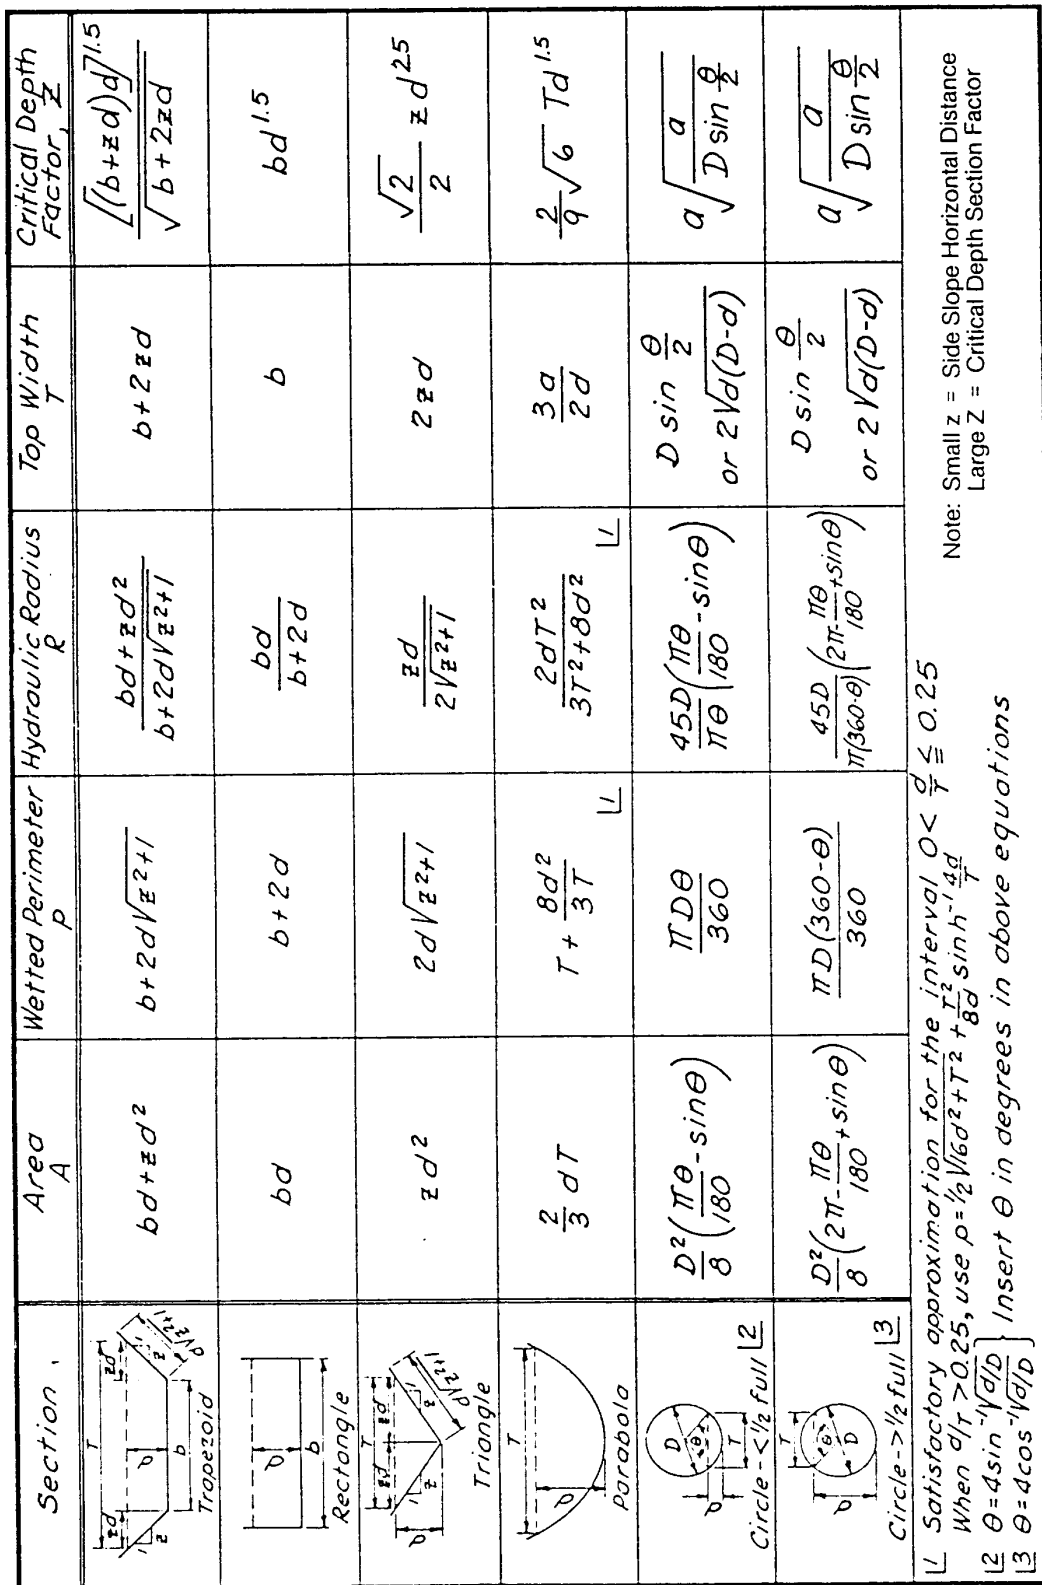 Section
Area
A
Wetted Perimeter
P
Hydraulic Radius
R
Top Width
T
Critical Depth
Factor, Z
zd T zd
1 z d b 1 z d√z²+1
Trapezoid
bd+zd²
b+2d√z²+1
(bd+zd²)/(b+2d√z²+1)
b+2zd
[(b+zd)d]^1.5/√b+2zd
d
b
Rectangle
bd
b+2d
bd/(b+2d)
b
bd^1.5
T
zd zd
1 z d 1 z d√z²+1
Triangle
zd²
2d√z²+1
zd/(2√z²+1)
2zd
(√2/2) zd^2.5
T
d
Parabola
2/3 dT
T+8d²/3T ⌊1
2dT²/(3T²+8d²) ⌊1
3a/2d
2/9 √6 Td^1.5
D θ d T
Circle-<1/2 full ⌊2
D²/8(πθ/180-sinθ)
πDθ/360
45D/πθ(πθ/180-sinθ)
D sin θ/2
or 2√d(D-d)
a√(a/(D sin θ/2))
T θ D d
Circle->1/2 full ⌊3
D²/8(2π-πθ/180+sinθ)
πD(360-θ)/360
45D/π(360-θ)(2π-πθ/180+sinθ)
D sin θ/2
or 2√d(D-d)
a√(a/(D sin θ/2))
⌊1 Satisfactory approximation for the interval 0< d/T ≦ 0.25
When d/T >0.25, use p=1/2√16d²+T² + T²/8d sinh⁻¹ 4d/T
⌊2 θ=4sin⁻¹√d/D
⌊3 θ=4cos⁻¹√d/D
} Insert θ in degrees in above equations
Note: Small z = Side Slope Horizontal Distance
Large Z = Critical Depth Section Factor